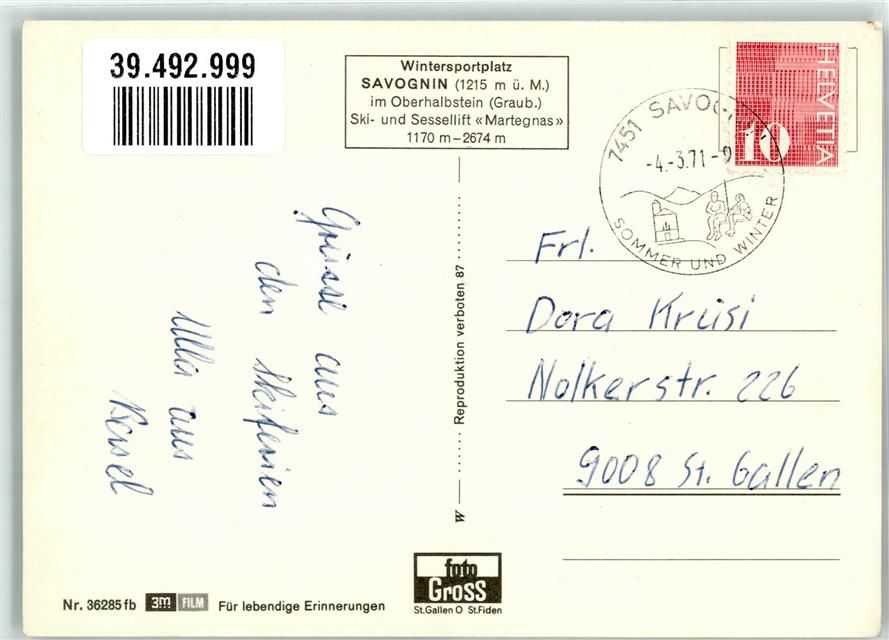 39.492.999
Wintersportplatz
SAVOGNIN (1215 m ü. M.)
im Oberhalbstein (Graub.)
Ski- und Sessellift «Martegnas»
1170 m–2674 m
HELVETIA
10
7451 SAVO
-4.-3.71-9
SOMMER UND WINTER
Grüsse aus
den Skiferien
Ulla aus
Basel
Reproduktion verboten 87
Frl.
Dora Krüsi
Nolkerstr. 226
9008 St. Gallen
foto
Gross
St.Gallen O St.Fiden
Nr. 36285 fb 3M FILM Für lebendige Erinnerungen